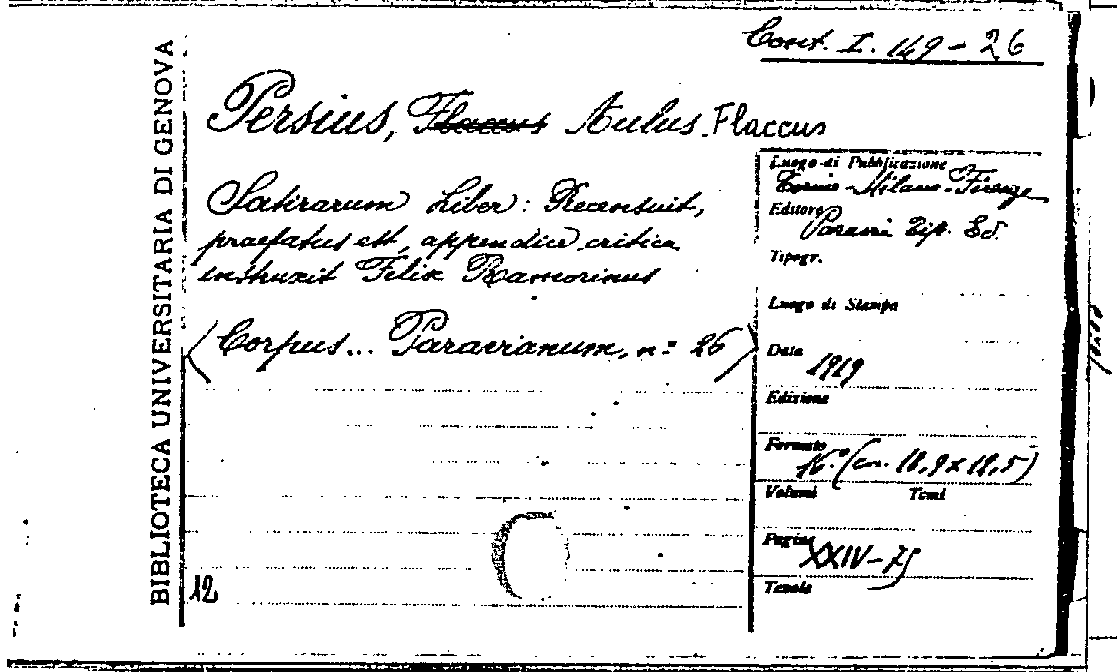 Cons. I. 149-26
BIBLIOTECA UNIVERSITARIA DI GENOVA
Persius, Flaccus Aulus Flaccus
Satirarum Liber: Recensuit,
praefatus est, appendice critica
instruxit Felix Ramorinus
(Corpus... Paravianum, n: 26)
Luogo di Pubblicazione
Torino-Milano-Firenze
Editore
Paravia Tip. Ed.
Tipogr.
Luogo di Stampa
Data
1919
Edizione
Formato
16.° (cm. 18,9 x 12,5)
Volumi Tomi
Pagine
XXIV-75
Tavole
12